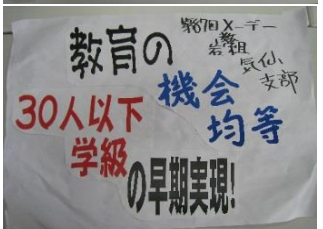 第87回メーデー
岩教組
気仙
支部
教育の
機会
均等
30人以下
学級
の早期実現!